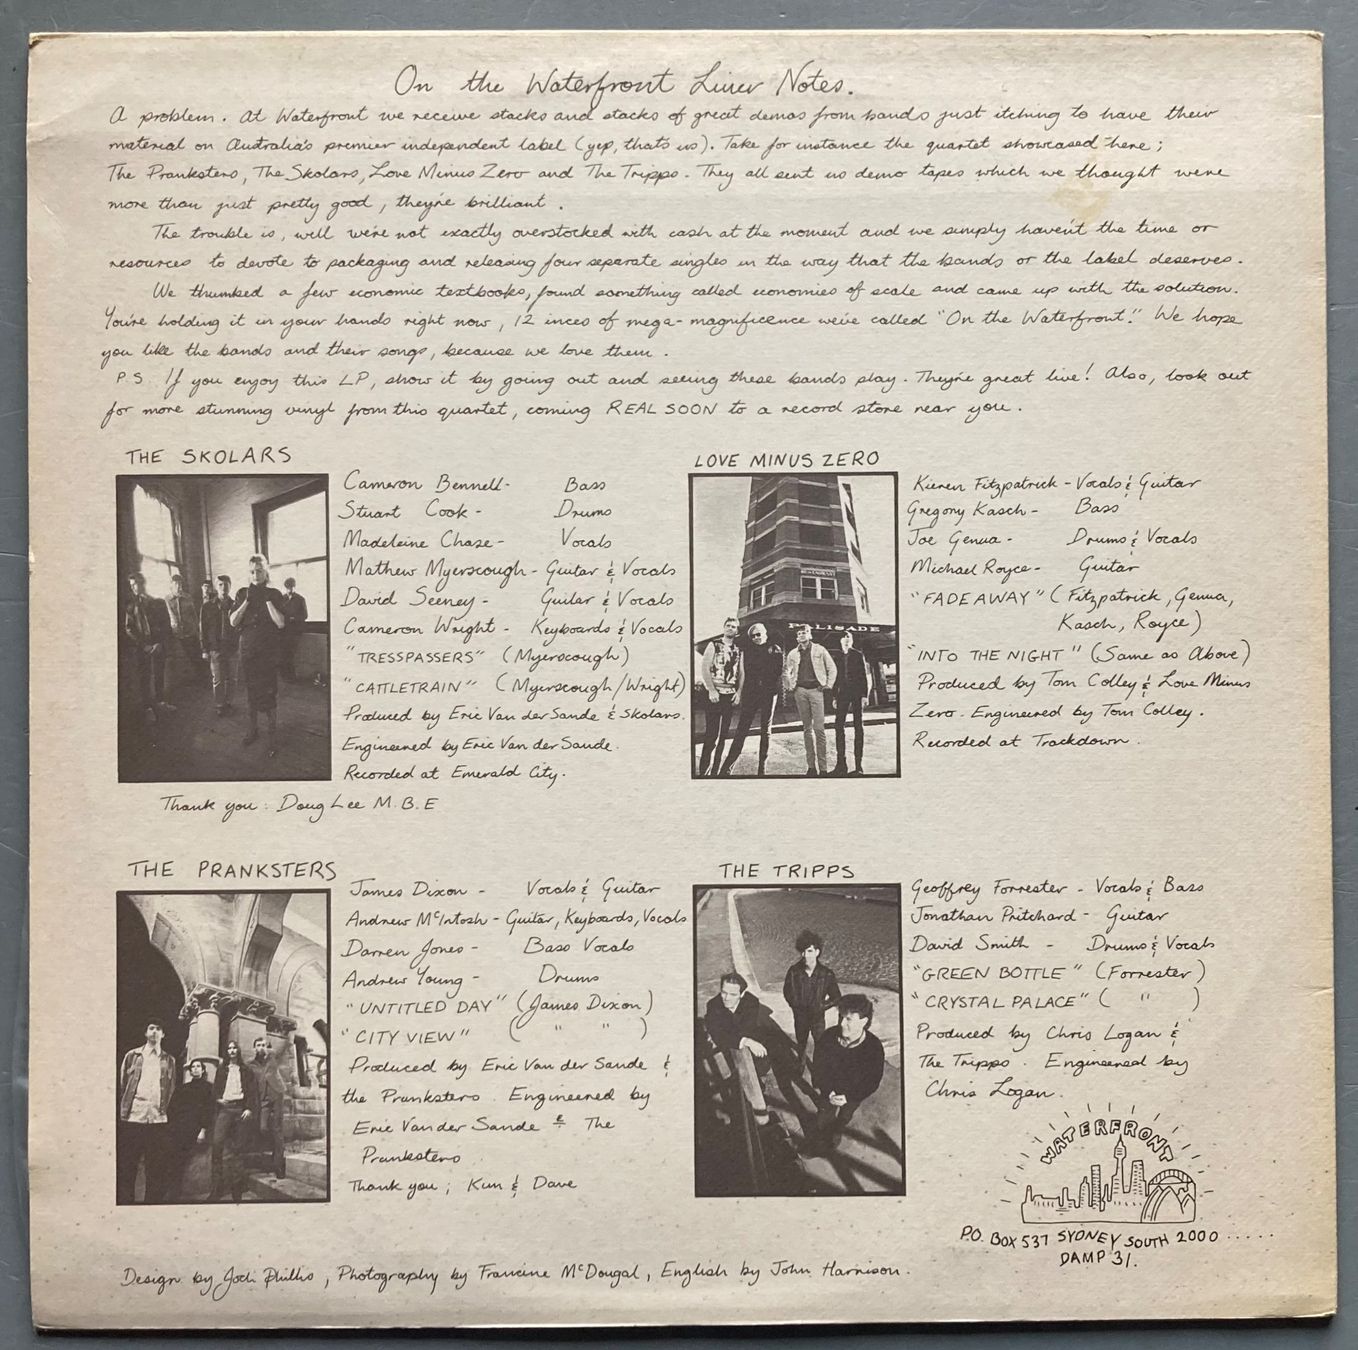 On the Waterfront Liner Notes.
A problem. At Waterfront we receive stacks and stacks of great demos from bands just itching to have their
material on Australia's premier independent label (yep, thats us). Take for instance the quartet showcased here;
The Pranksters, The Skolars, Love Minus Zero and The Tripps. They all sent us demo tapes which we thought were
more than just pretty good, they're brilliant.
The trouble is, well we're not exactly overstocked with cash at the moment and we simply haven't the time or
resources to devote to packaging and releasing four separate singles in the way that the bands or the label deserves.
We thumbed a few economic textbooks, found something called economies of scale and came up with the solution.
You're holding it in your hands right now, 12 inces of mega-magnificence we've called "On the Waterfront". We hope
you like the bands and their songs, because we love them.
P.S. If you enjoy this LP, show it by going out and seeing these bands play. They're great live! Also, look out
for more stunning vinyl from this quartet, coming REAL SOON to a record store near you.
THE SKOLARS
Cameron Bennell- Bass
Stuart Cook - Drums
Madeleine Chase- Vocals
Mathew Myerscough- Guitar & Vocals
David Seeney - Guitar & Vocals
Cameron Wright- Keyboards & Vocals
"TRESSPASSERS" (Myerscough)
"CATTLETRAIN" (Myerscough/Wright)
Produced by Eric Van der Sande & Skolars.
Engineered by Eric Van der Sande.
Recorded at Emerald City.
Thank you: Doug Lee M.B.E
LOVE MINUS ZERO
PALISADE
RESTAURANT
Kieren Fitzpatrick - Vocals & Guitar
Gregory Kasch - Bass
Joe Genua - Drums & Vocals
Michael Royce- Guitar
"FADE AWAY" (Fitzpatrick, Genua,
Kasch, Royce)
"INTO THE NIGHT" (Same as Above)
Produced by Tom Colley & Love Minus
Zero. Engineered by Tom Colley.
Recorded at Trackdown.
THE PRANKSTERS
James Dixon - Vocals & Guitar
Andrew McIntosh - Guitar, Keyboards, Vocals
Darren Jones - Bass Vocals
Andrew Young - Drums
"UNTITLED DAY" (James Dixon)
"CITY VIEW" ( " " )
Produced by Eric Van der Sande &
the Pranksters. Engineered by
Eric Van der Sande & The
Pranksters.
Thank you; Kim & Dave
THE TRIPPS
Geoffrey Forrester - Vocals & Bass
Jonathan Pritchard - Guitar
David Smith - Drums & Vocals
"GREEN BOTTLE" (Forrester)
"CRYSTAL PALACE" ( " )
Produced by Chris Logan &
The Tripps. Engineered by
Chris Logan.
WATERFRONT
P.O. BOX 537 SYDNEY SOUTH 2000 ......
DAMP 31.
Design by Jodi Phillis, Photography by Francine McDougal, English by John Harrison.